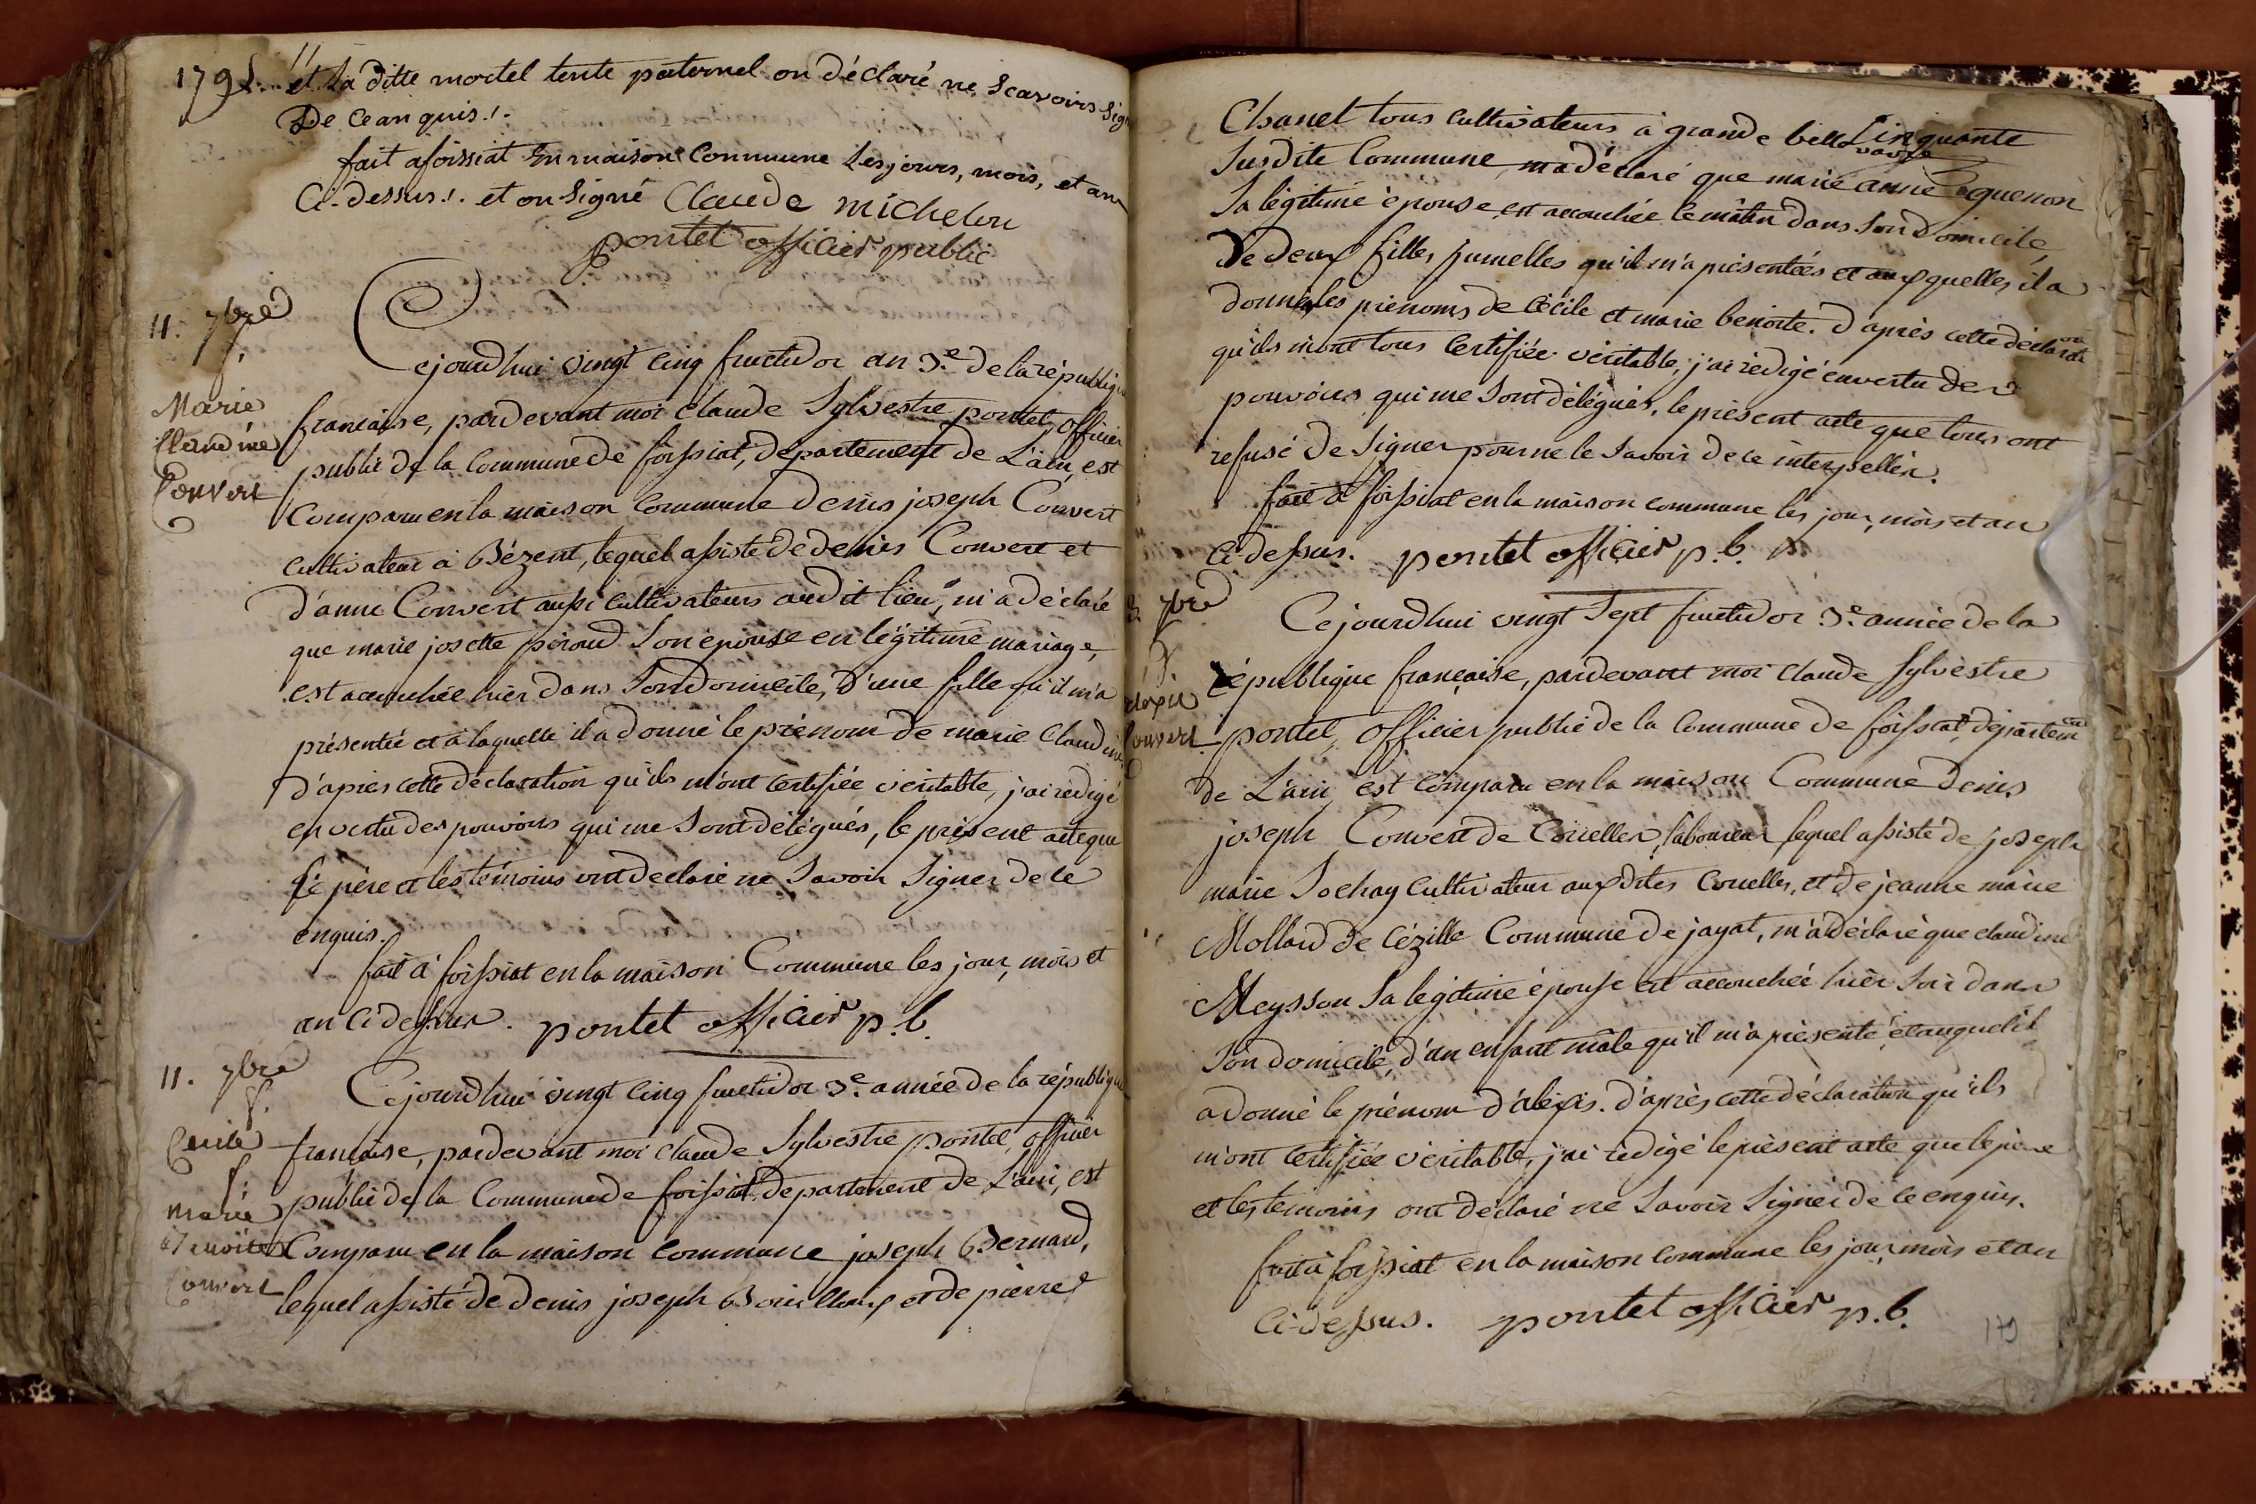 1795. et la ditte mortel tente paternel on déclaré ne scavoirs sign
De ce anquis !.
fait afoissiat En maison Commune Les jours, mois, et an
Ci-dessus !. et on signé Claude michelon
pontet officier public
11. 7bre
f.
Marie
Claudine
Convert
Cejourd'hui vingt cinq fructidor an 3.e de la républiqu
francaise, pardevant moi Claude Sylvestre pontet, officier
public de la Commune de foissiat, departement de L'ain, est
Comparu en la maison Commune Denis joseph Convert
cultivateur à Bézent, lequel assisté de denis Convert et
d'anne Convert aussi cultivateurs audit lieu, m'a déclaré
que marie josette péraud son épouse en légitime mariage,
est accouchée hier dans son domicile, d'une fille qu'il m'a
présentée et à laquelle il a donné le prénom de marie Claudine
d'après cette déclaration qu'ils m'ont certifiée véritable, j'ai rédigé
en vertu des pouvoirs qui me sont délégués, le présent acte que
le père et les témoins ont déclaré ne savoir signer de ce
enquis.
fait à foissiat en la maison Commune les jour, mois et
an ci dessus. pontet officier p.b.
11. 7bre
f.
Cecile
f.
Marie
Benoite
Convert
Cejourd'hui vingt cinq fructidor 3.e année de la républiqu
francaise, pardevant moi claude Sylvestre pontet, officier
public de la Commune de foissiat, departement de L'ain, est
Comparu en la maison commune joseph Bernard,
lequel assisté de denis joseph Bouilloux et de pierre
Chanel tous cultivateurs à grande bellevavre Cinquante
Susdite Commune, m'a déclaré que marie anne aguenon
Sa légitime épouse est accouchée le matin dans son Domicile,
De deux filles jumelles qu'il m'a présentées et auxquelles il a
donné les prénoms de Cécile et marie benoite. D'après cette déclaraon
qu'ils m'ont tous certifiée véritable, j'ai rédigé en vertu des
pouvoirs qui me sont délégués, le présent acte que tous ont
refusé de signer pour ne le savoir de ce interpellés.
fait à foissiat en la maison commune les jour, mois et an
Ci-dessus. pontet officier p.b.
7bre
f.
alexis
Convert
Cejourd'hui vingt sept fructidor 3.e année de la
république francaise, pardevant moi claude Sylvestre
pontet, officier public de la Commune de foissiat, département
de L'ain, est comparu en la maison Commune Denis
joseph Convert de Cruelles, laboureur lequel assisté de joseph
marie Sochay cultivateur auxdites Cruelles, et de jeanne marie
Mollard de Cézille Commune de jayat, m'a déclaré que claudine
Meysson sa légitime épouse est accouchée hier soir dans
son domicile, d'un enfant mâle qu'il m'a présenté, et auquel il
a donné le prénom d'alexis. d'après cette déclaration qu'ils
m'ont certifiée véritable, j'ai rédigé le présent acte que le père
et les témoins ont déclaré ne savoir signer de ce enquis.
fait à foissiat en la maison commune les jour mois et an
Ci-dessus. pontet officier p.b.
179